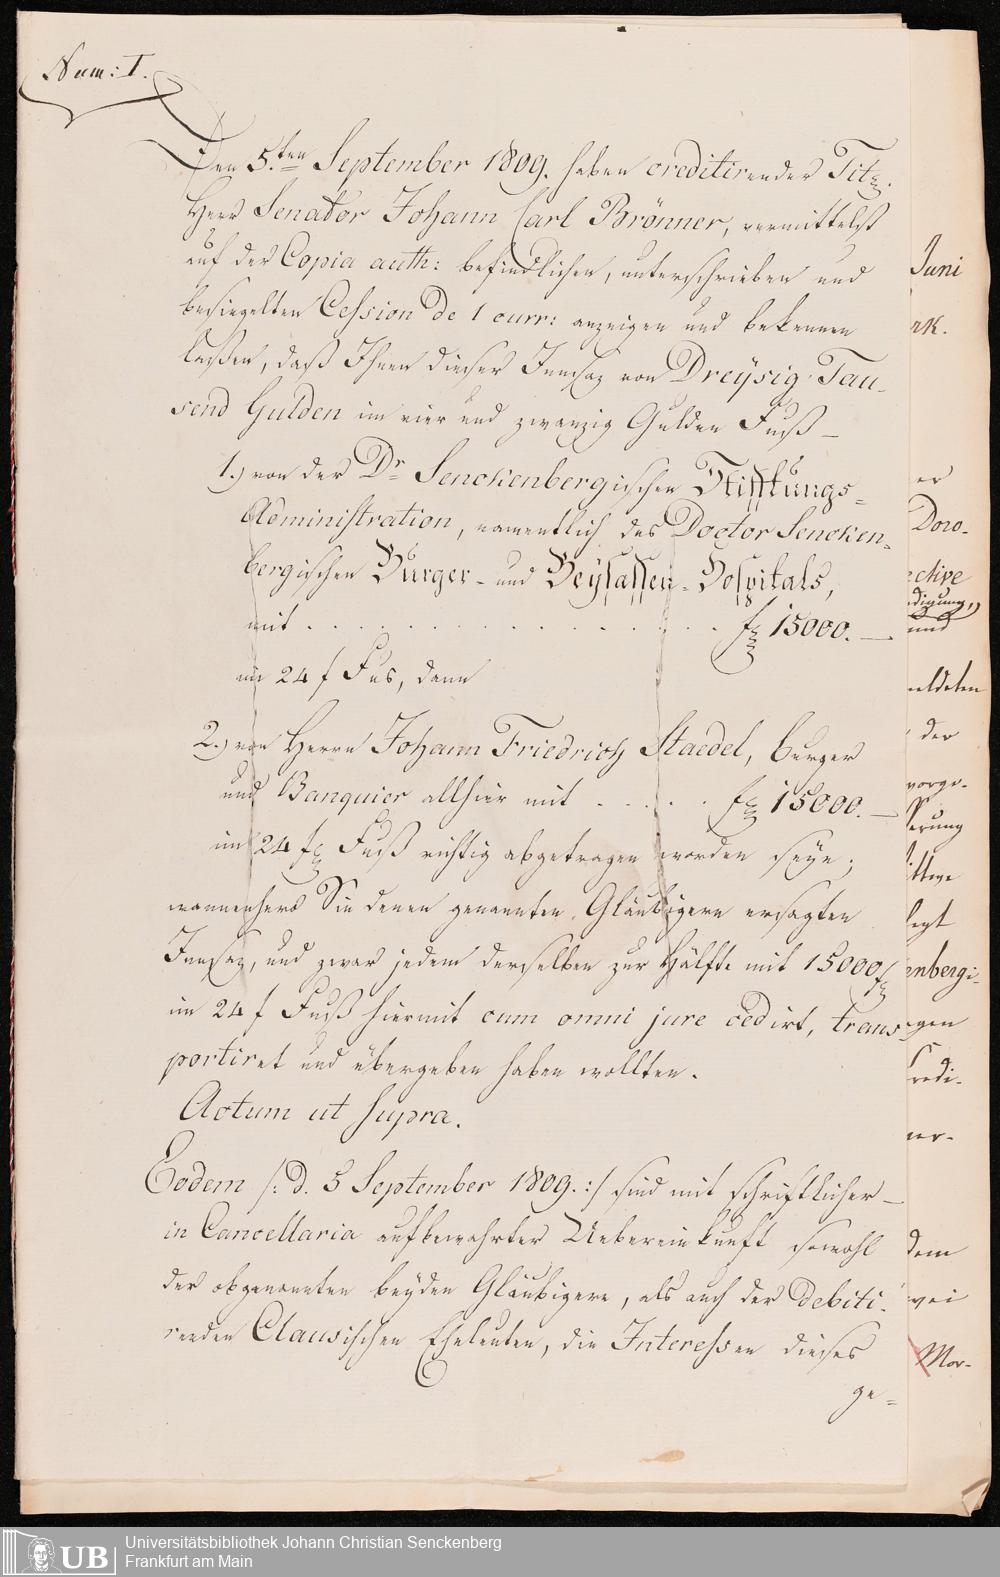 Num: I.
Den 5.ten September 1809. haben creditirender Titz.
Herr Senator Johann Carl Brönner, vermittelst
auf der Copia auth: befindlichen, unterschrieben und
besiegelten Cession de 1 curr: anzeigen und bekennen
laßen, daß Ihnen dieser Innsaz von Dreÿsig Tau-
send Gulden im vier und zwanzig Gulden Fuß –
1.) von der Dr Senckenbergischen Stifftungs-
Administration, namentlich des Doctor Sencken-
bergischen Burger- und Beÿsassen-Hospitals,
mit . . . . . . . . . . . . . . f 15000.—
im 24 f Fus, dann
2.) von Herrn Johann Friedrich Staedel, Burger
und Banquier allhier mit . . . . . f 15000.—
im 24 f Fuß richtig abgetragen worden seÿe;
wannenhero Sie denen genannten Gläubigern ersagten
Innsaz, und zwar jedem derselben zur Hälfte mit 15000 f
im 24 f Fuß hiermit cum omni jure cedirt, trans-
portiret und übergeben haben wollten.
Actum ut supra.
Eodem /: d. 5 September 1809. :/ sind mit schriftlicher –
in Cancellaria aufbewahrter Uebereinkunft sowohl
der obgenannten beyden Gläubigere, als auch der debiti-
renden Clausischen Eheleuten, die Interessen dieses
ge-
Juni
rk.
er
Doro-
ective
digung,
und
meldeten
der
vorge-
serung
ittwe
legt
enbergi-
gen
redi-
ner-
dem
wei
Mor-
UB
Universitätsbibliothek Johann Christian Senckenberg
Frankfurt am Main